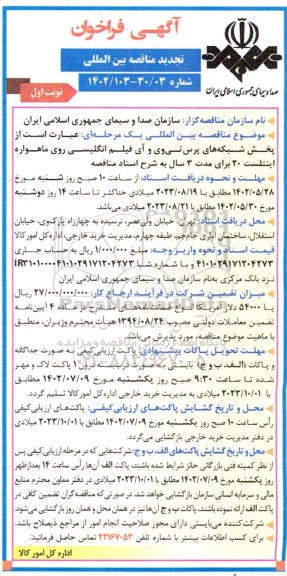 آگهـی فراخوان
تجدید مناقصه بین المللی
شماره ۳۰/۰۳-۱۴۰۲/۱۰۳
نوبت اول
صدا و سیمای جمهوری اسلامی ایران
نام سازمان مناقصه‌گزار: سازمان صدا و سیمای جمهوری اسلامی ایران
موضوع مناقصه بین المللی یک مرحله‌ای: عبارت است از
پخش شبکه‌های پرس‌تی‌وی و آی فیلم انگلیسی روی ماهواره
اینتلست ۲۰ برای مدت ۳ سال به شرح اسناد مناقصه
مهلت و نحوه دریافت اسناد: از ساعت ۱۰ صبح روز شنبه مورخ
۱۴۰۲/۰۵/۲۸ مطابق با ۲۰۲۳/۰۸/۱۹ میلادی حداکثر تا ساعت ۱۴ روز دوشنبه
مورخ ۱۴۰۲/۰۵/۳۰ مطابق با ۲۰۲۳/۰۸/۲۱ میلادی می‌باشد.
محل دریافت اسناد: تهران، خیابان ولی‌عصر، نرسیده به چهارراه پارک‌وی، خیابان
استقلال، ساختمان اداری جام‌جم، طبقه چهارم، مدیریت خرید خارجی، اداره کل امور کالا
قیمت اسناد و نحوه واریز وجه: مبلغ ۱/۰۰۰/۰۰۰ ریال به حساب جاری
۴۱۰۱۰۲۹۱۷۱۲۰۴۲۷۳ و یا شماره شبا IR۳۱۰۱۰۰۰۰۴۱۰۱۰۲۹۱۷۱۲۰۴۲۷۳
نزد بانک مرکزی به‌نام سازمان صدا و سیمای جمهوری اسلامی ایران
میزان تضمین شرکت در فرآیند ارجاع کار: ۲۷/۰۰۰/۰۰۰/۰۰۰ ریال
یا ۵۴۰۰۰ دلار آمریکا انواع ضمانت‌نامه‌های مندرج در ماده ۴ آیین‌نامه
تضمین معاملات دولتی مصوب ۱۳۹۴/۰۸/۲۴ هیأت محترم وزیران، منطبق
با ماهیت موضوع مناقصه، مورد پذیرش می‌باشد.
مهلت تحویل پاکات پیشنهادی: پاکت ارزیابی کیفی به صورت جداگانه
و پاکات (الف، ب و ج) بایستی به صورت دربسته، در درون ۱ پاکت لاک و مهر
شده تا ساعت ۹:۳۰ صبح روز یکشنبه مورخ ۱۴۰۲/۰۷/۰۹ مطابق
با ۲۰۲۳/۱۰/۰۱ میلادی به مدیریت خرید خارجی اداره کل امور کالا تقدیم گردد.
محل و تاریخ گشایش پاکت‌های ارزیابی کیفی: پاکت‌های ارزیابی کیفی
رأس ساعت ۱۰ صبح روز یکشنبه مورخ ۱۴۰۲/۰۷/۰۹ مطابق با ۲۰۲۳/۱۰/۰۱ میلادی
در دفتر مدیریت خرید خارجی بازگشایی می‌گردد.
محل و تاریخ گشایش پاکت‌های الف، ب و ج: شرکت‌هایی که در مرحله ارزیابی کیفی پس
از نظر کمیته فنی بازرگانی حائز شرایط شده باشند، پاکت الف آن‌ها رأس ساعت ۱۴ بعدازظهر
روز یکشنبه مورخ ۱۴۰۲/۰۷/۰۹ مطابق با ۲۰۲۳/۱۰/۰۱ میلادی در دفتر معاون محترم منابع
مالی و سرمایه انسانی سازمان بازگشایی خواهد شد. در صورتی که مناقصه‌گران تضمین کافی در
پاکت الف ارائه نموده باشند، پاکات ب و ج آن‌ها نیز در همان محل و همان روز بازگشایی می‌شود.
شرکت‌کننده می‌بایستی دارای مجوز صلاحیت انجام امور از مراجع ذیصلاح باشد.
برای کسب اطلاعات بیشتر با شماره تلفن ۲۲۱۶۷۰۵۳ تماس حاصل فرمائید.
اداره کل امور کالا